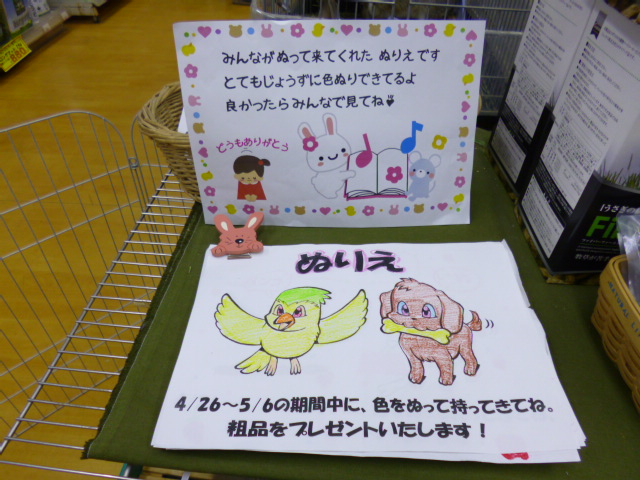 みんながぬって来てくれた ぬりえです
とてもじょうずに色ぬりできてるよ
良かったらみんなで見てね
どうもありがとう
ぬりえ
4/26～5/6の期間中に、色をぬって持ってきてね。
粗品をプレゼントいたします！